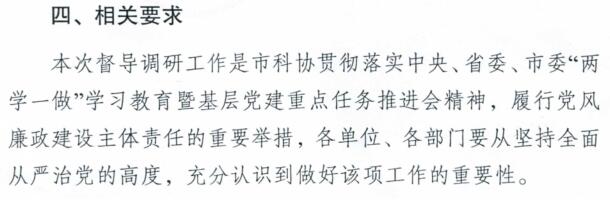 四、相关要求
本次督导调研工作是市科协贯彻落实中央、省委、市委“两
学一做”学习教育暨基层党建重点任务推进会精神，履行党风
廉政建设主体责任的重要举措，各单位、各部门要从坚持全面
从严治党的高度，充分认识到做好该项工作的重要性。